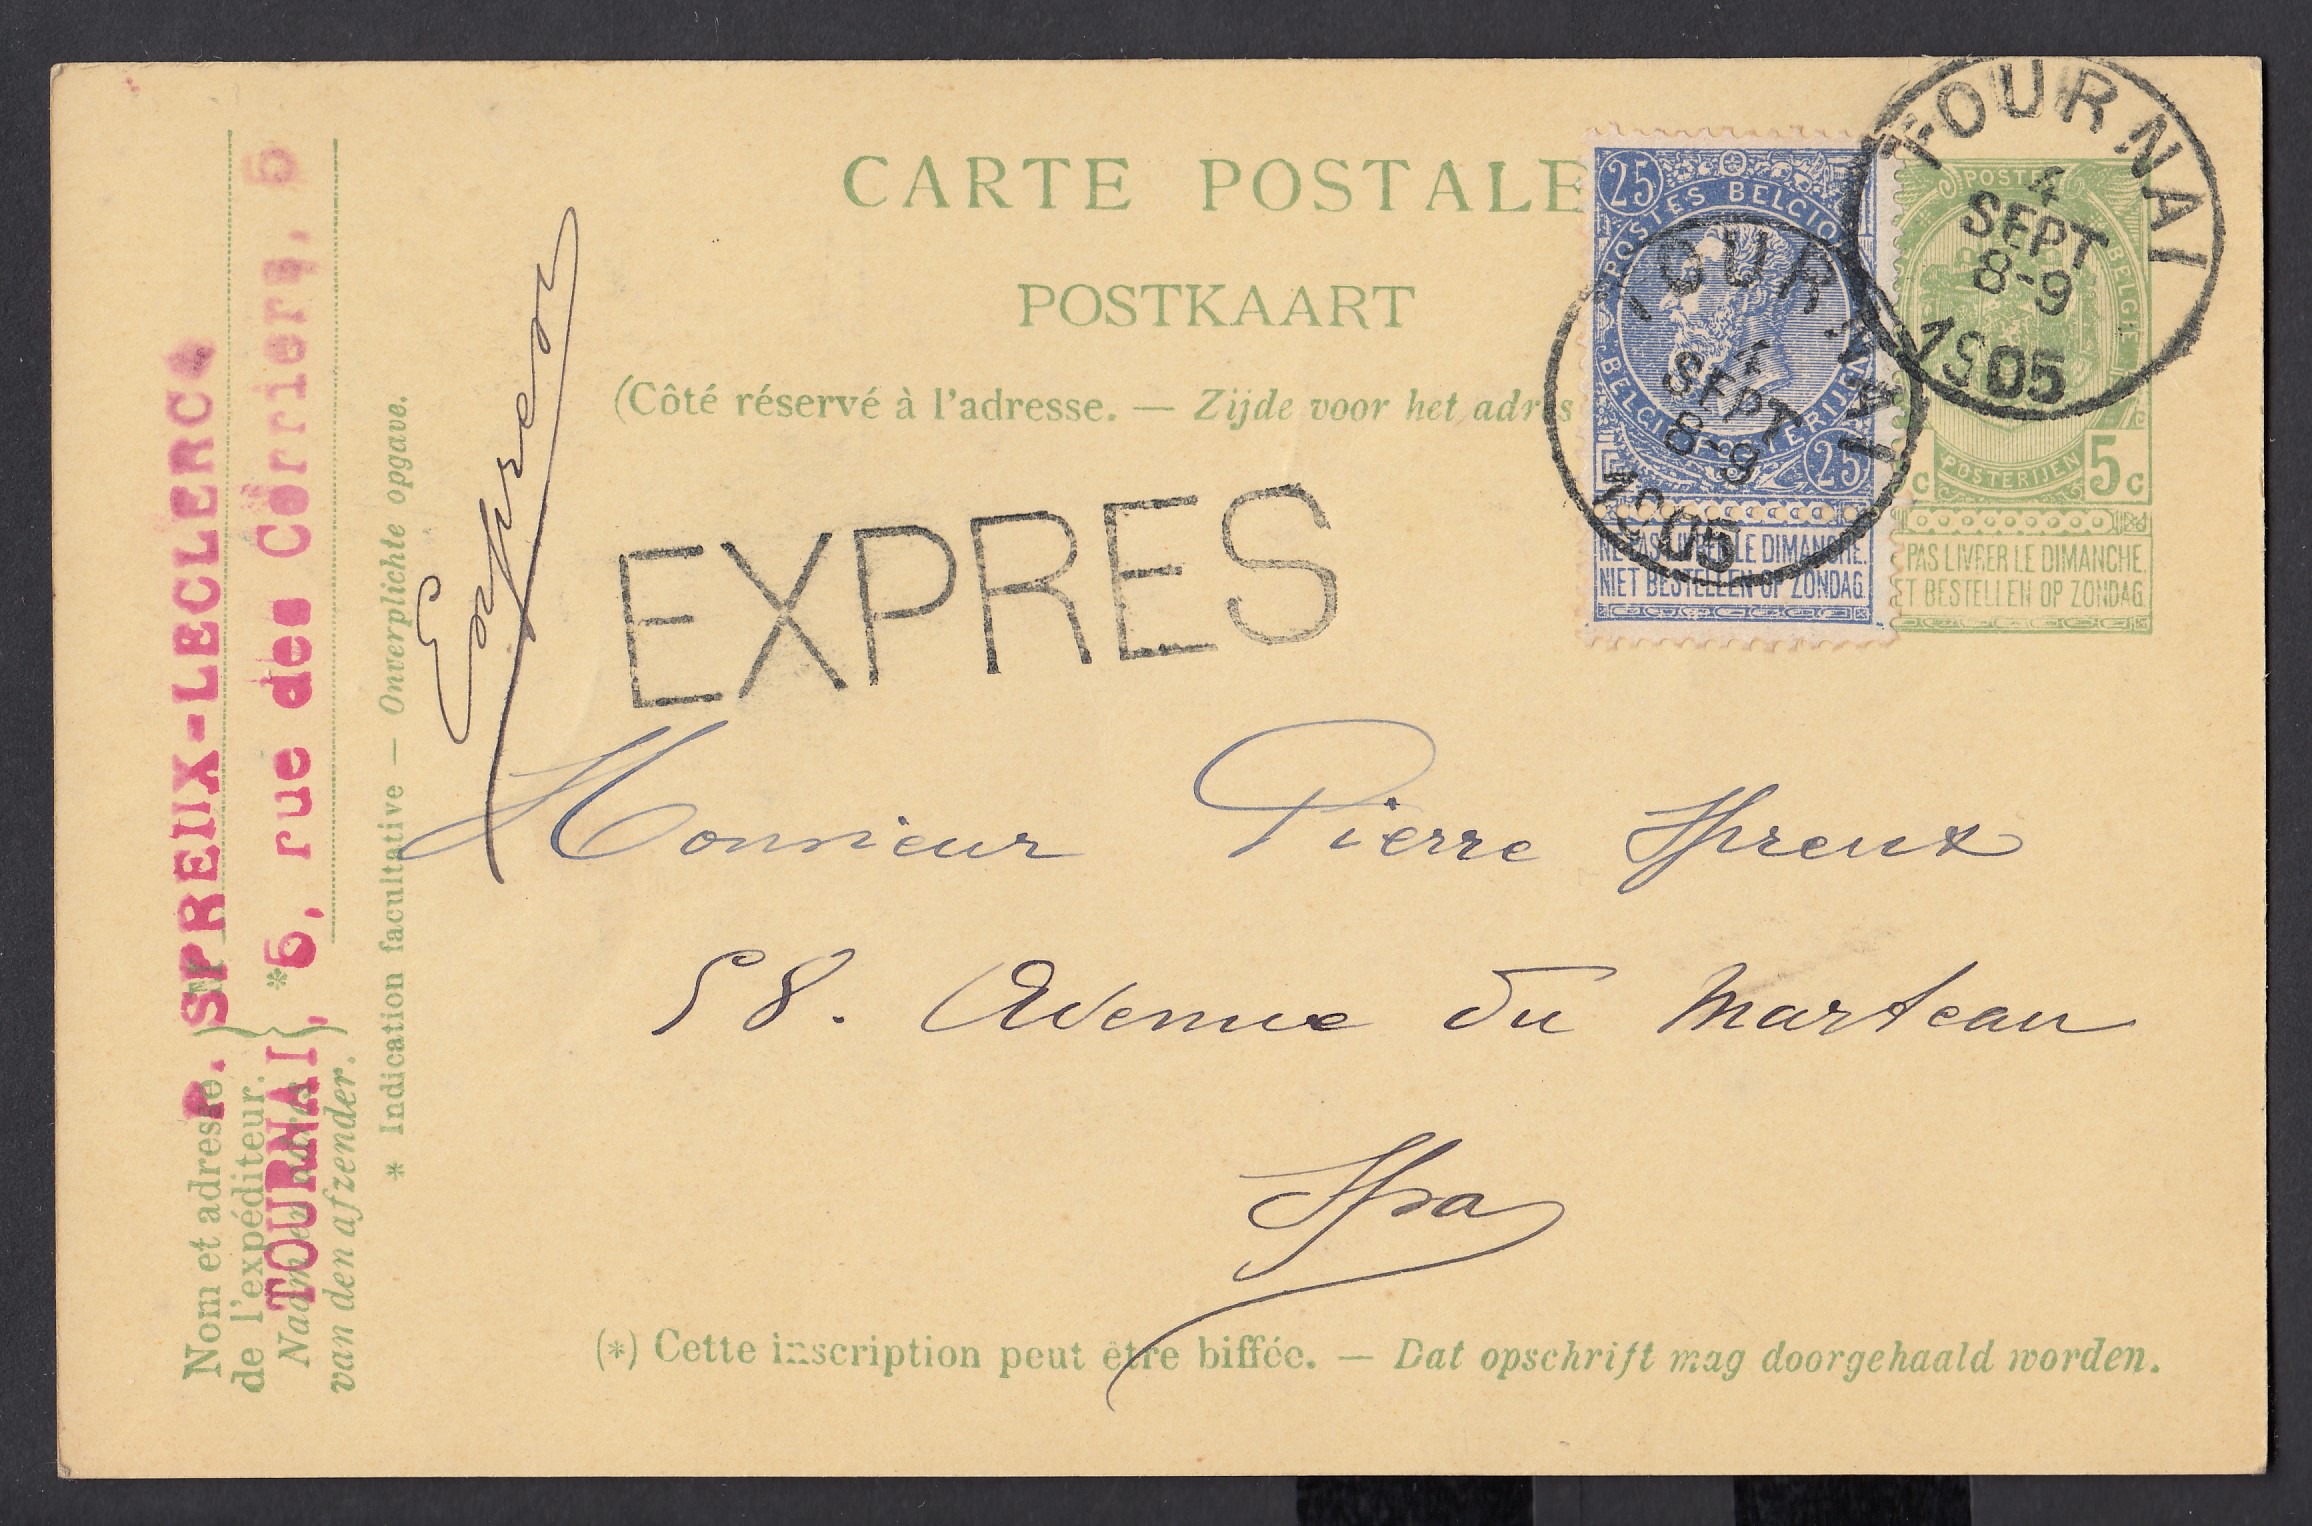 CARTE POSTALE
POSTKAART
(Côté réservé à l'adresse. — Zijde voor het adres
EXPRES
Expres
Monsieur Pierre Spreux
58. Avenue du Marteau
Spa
(*) Cette inscription peut être biffée. — Dat opschrift mag doorgehaald worden.
P. SPREUX-LECLERC
TOURNAI, 5, rue des Corriers, 5
Nom et adresse
de l'expéditeur.
Naam en adres
van den afzender.
* Indication facultative — Onverplichte opgave.
25
POSTES BELGIQUE
BELGIE POSTERIJEN
25
NE PAS LIVRER LE DIMANCHE.
NIET BESTELLEN OP ZONDAG.
TOURNAI
4
SEPT
8-9
1905
POSTES
BELGIE
POSTERIJEN
c 5c
PAS LIVRER LE DIMANCHE.
ET BESTELLEN OP ZONDAG.
TOURNAI
4
SEPT
8-9
1905